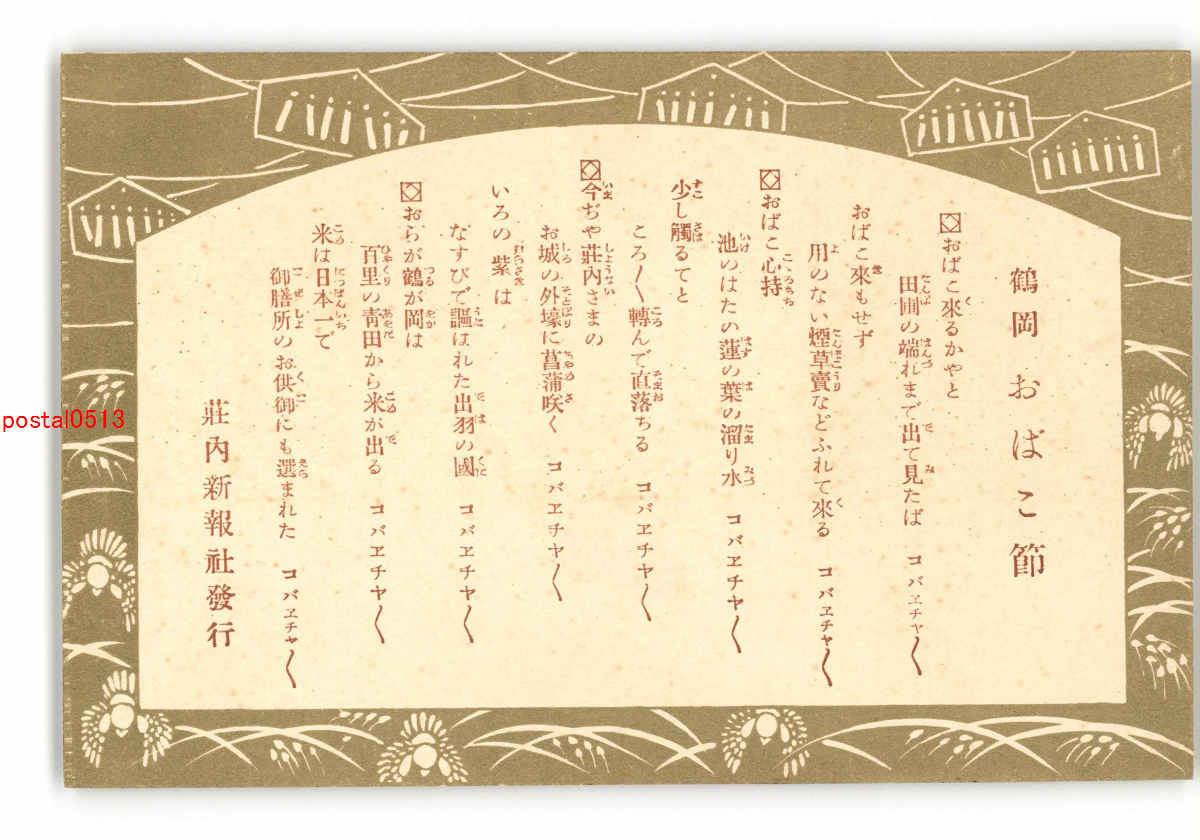 鶴岡おばこ節
おばこ來るかやと
田圃の端れまで出て見たば コバヱチヤ〱
おばこ來もせず
用のない煙草賣などふれて來る コバヱチヤ〱
おばこ心持
池のはたの蓮の葉の溜り水 コバヱチヤ〱
少し觸るてと
ころ〱轉んで直落ちる コバヱチヤ〱
今ぢや莊內さまの
お城の外壕に菖蒲咲く コバヱチヤ〱
いろの紫は
なすびで謳はれた出羽の國 コバヱチヤ〱
おらが鶴が岡は
百里の靑田から米が出る コバヱチヤ〱
米は日本一で
御膳所のお供御にも選まれた コバヱチヤ〱
莊內新報社發行
postal0513